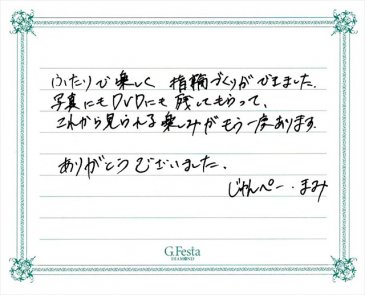 ふたりで楽しく 指輪づくりができました。
写真にもDVDにも 残してもらって、
これから見られる楽しみがもう一度あります。
ありがとうございました。
じゅんぺー・まみ
G.Festa
DIAMOND